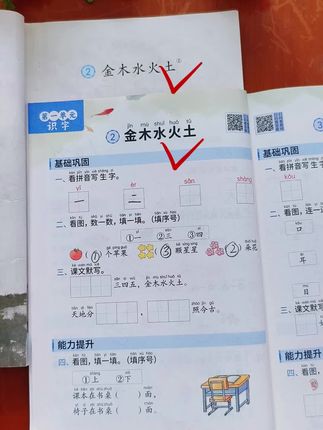 ② 金木水火土①
第一单元
识字
jīn mù shuǐ huǒ tǔ
② 金木水火土
基础巩固
一、看拼音写生字。
yī èr sān shàng
一 二
二、看图，数一数，填一填。（填序号）
①一 ②三 ③四
（①）个苹果 （③）颗星星 （②）朵花
三、课文默写。
三四五，金木水火土。
天地分 照今古。
能力提升
四、看图，填一填。（填序号）
①上 ②下
课本在书桌（ ）面，
椅子在书桌（ ）面。
③
基础
一、看拼
kǒu
二、看图，连一
耳
目